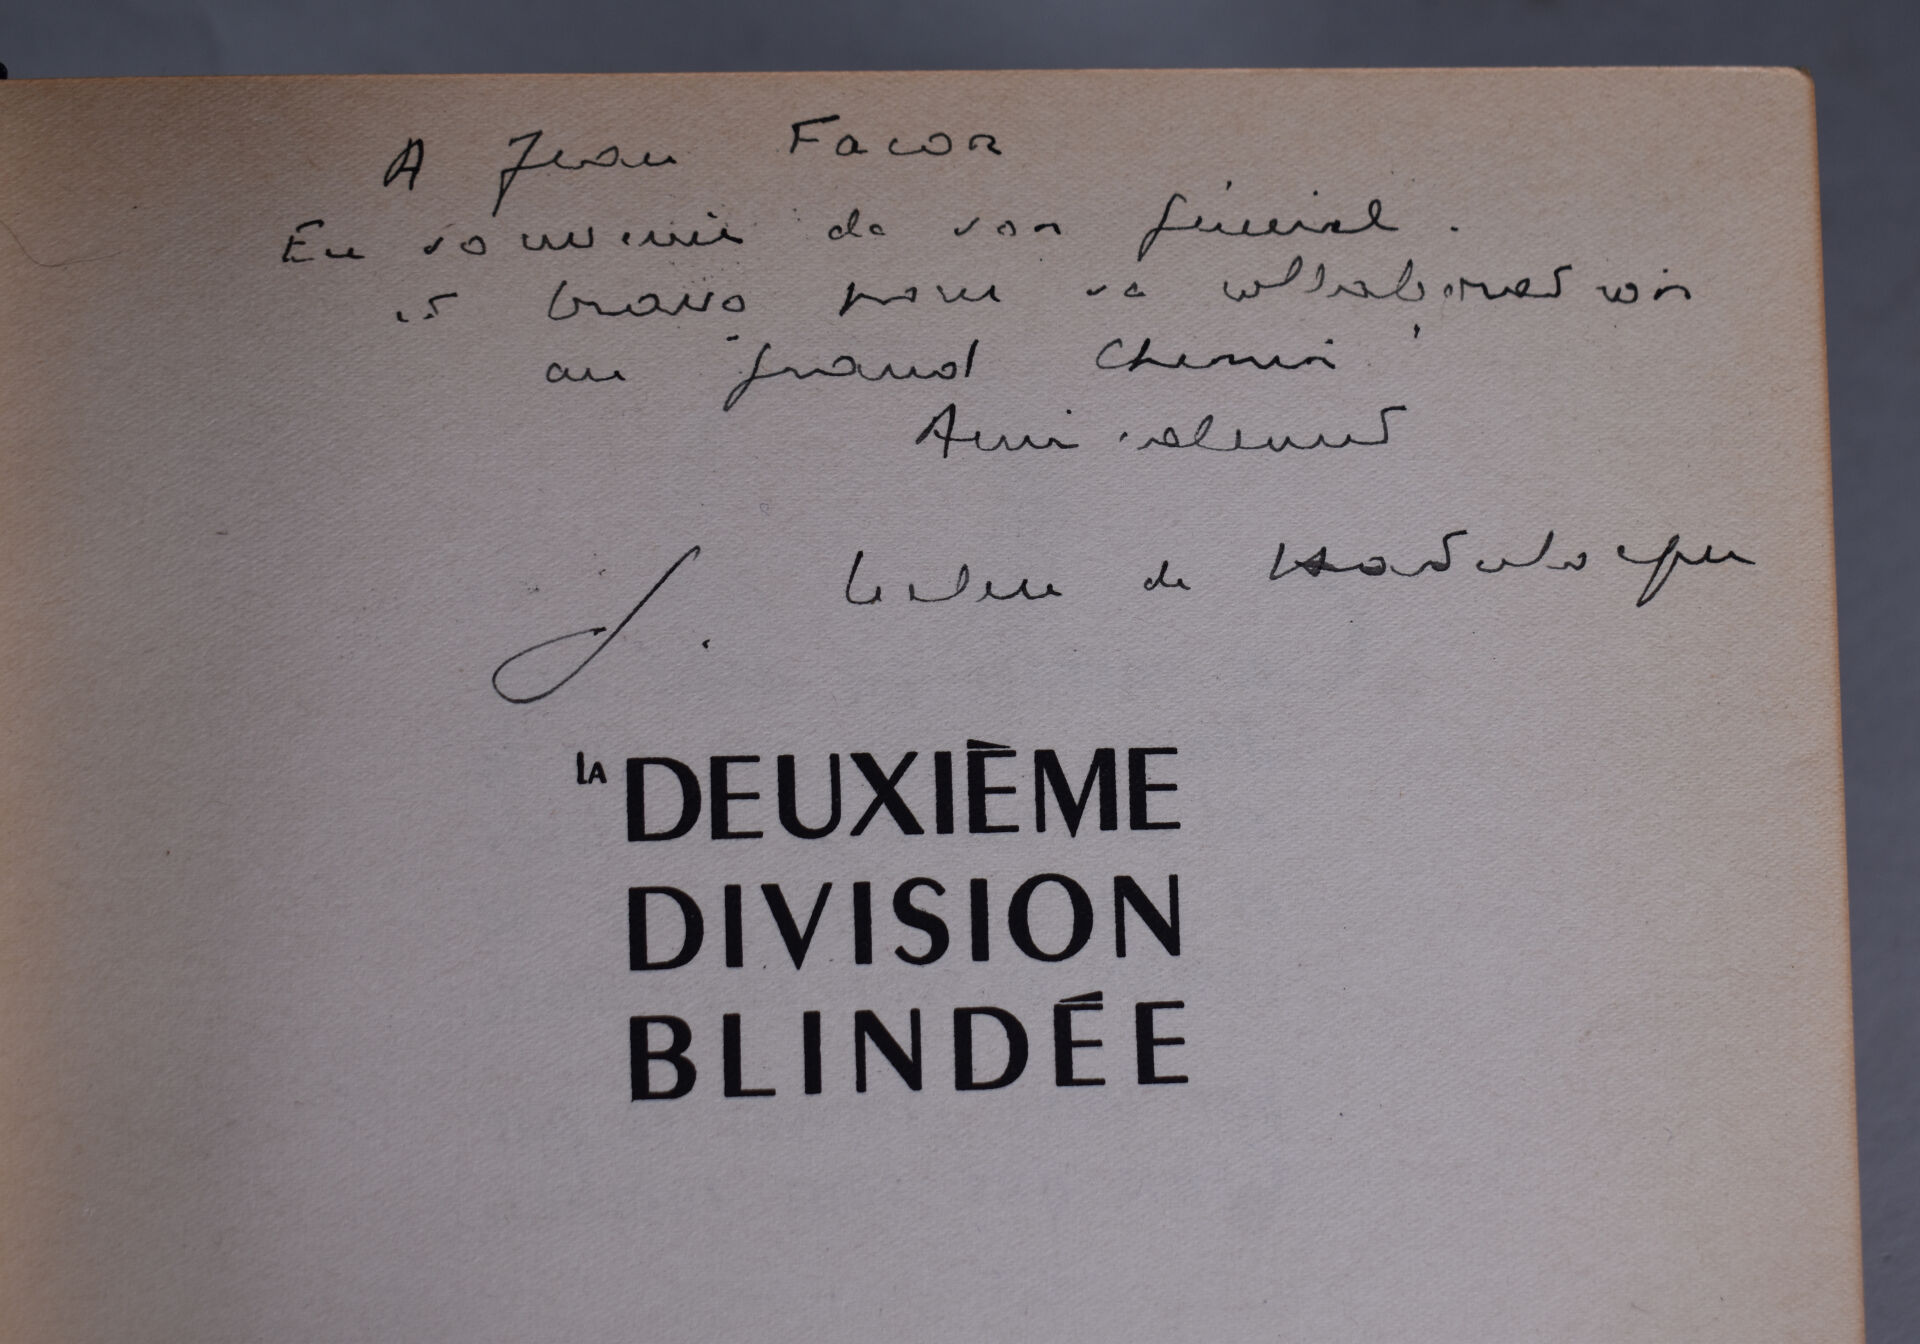 A Jean Facon
En souvenir de son général.
et bravo pour sa collaboration
au "grand Chemin"
Amicalement
J. Leclerc de Hauteclocque
LA DEUXIÈME
DIVISION
BLINDÉE